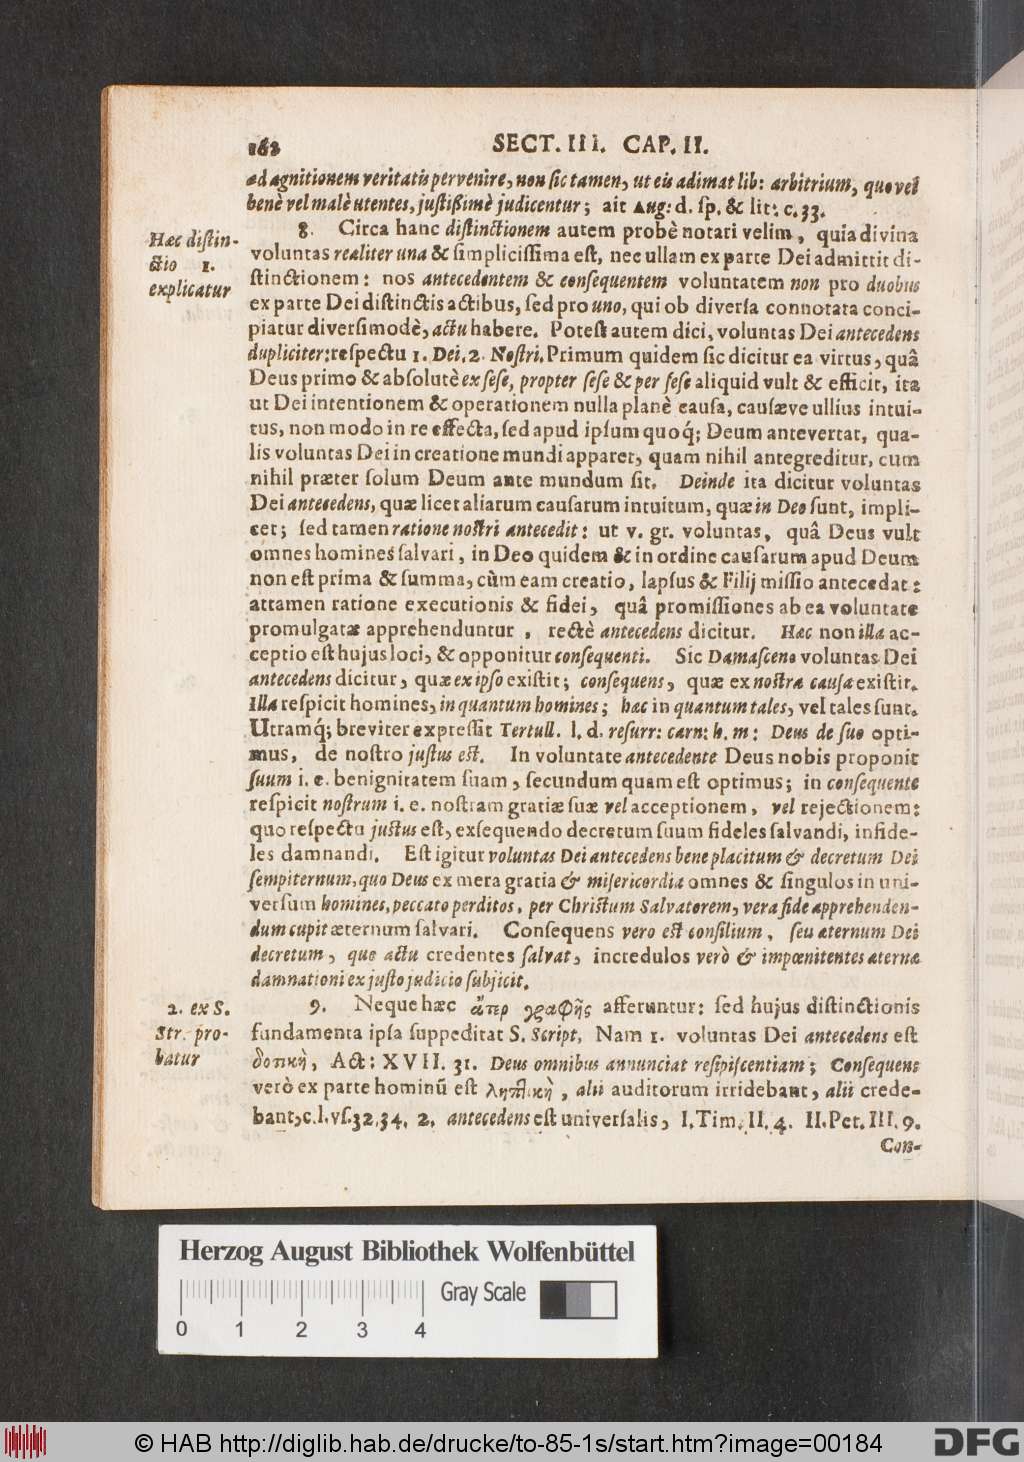 162 SECT. III. CAP. II.
ad agnitionem veritatis pervenire, non sic tamen, ut eis adimat lib: arbitrium, quo vel
benè vel malè utentes, justißimè judicentur; ait Aug: d. sp. & lit: c. 33.
Hæc distin-
ctio 1.
explicatur
8. Circa hanc distinctionem autem probè notari velim, quia divina
voluntas realiter una & simplicissima est, nec ullam ex parte Dei admittit di-
stinctionem: nos antecedentem & consequentem voluntatem non pro duobus
ex parte Dei distinctis actibus, sed pro uno, qui ob diversa connotata conci-
piatur diversimodè, actu habere. Potest autem dici, voluntas Dei antecedens
dupliciter: respectu 1. Dei. 2. Nostri. Primum quidem sic dicitur ea virtus, quâ
Deus primo & absolutè ex sese, propter sese & per sese aliquid vult & efficit, ita
ut Dei intentionem & operationem nulla planè causa, causæve ullius intui-
tus, non modo in re effecta, sed apud ipsum quoq́; Deum antevertat, qua-
lis voluntas Dei in creatione mundi apparet, quam nihil antegreditur, cum
nihil præter solum Deum ante mundum sit. Deinde ita dicitur voluntas
Dei antecedens, quæ licet aliarum causarum intuitum, quæ in Deo sunt, impli-
cet; sed tamen ratione nostri antecedit: ut v. gr. voluntas, quâ Deus vult
omnes homines salvari, in Deo quidem & in ordine causarum apud Deum
non est prima & summa, cùm eam creatio, lapsus & Filij missio antecedat:
attamen ratione executionis & fidei, quâ promissiones ab ea voluntate
promulgatæ apprehenduntur, rectè antecedens dicitur. Hæc non illa ac-
ceptio est hujus loci, & opponitur consequenti. Sic Damasceno voluntas Dei
antecedens dicitur, quæ ex ipso existit; consequens, quæ ex nostra causa existit.
Illa respicit homines, in quantum homines; hæc in quantum tales, vel tales sunt.
Utramq́; breviter expressit Tertull. l. d. resurr: carn: h. m: Deus de suo opti-
mus, de nostro justus est. In voluntate antecedente Deus nobis proponit
suum i. e. benignitatem suam, secundum quam est optimus; in consequente
respicit nostrum i. e. nostram gratiæ suæ vel acceptionem, vel rejectionem:
quo respectu justus est, exsequendo decretum suum fideles salvandi, infide-
les damnandi. Est igitur voluntas Dei antecedens beneplacitum & decretum Dei
sempiternum, quo Deus ex mera gratia & misericordia omnes & singulos in uni-
versum homines, peccato perditos, per Christum Salvatorem, vera fide apprehenden-
dum cupit æternum salvari. Consequens vero est consilium, seu æternum Dei
decretum, quo actu credentes salvat, incredulos verò & impœnitentes æternæ
damnationi ex justo judicio subjicit.
2. ex S.
Str. pro-
batur
9. Neque hæc ἄπερ γραφῆς afferuntur: sed hujus distinctionis
fundamenta ipsa suppeditat S. Script. Nam 1. voluntas Dei antecedens est
δοτικὴ, Act: XVII. 31. Deus omnibus annunciat resipiscentiam; Consequens
verò ex parte hominũ est ληπτικὴ, alii auditorum irridebant, alii crede-
bant, c. l. vs. 32. 34. 2. antecedens est universalis, I. Tim. II. 4. II. Pet. III. 9.
Con-
Herzog August Bibliothek Wolfenbüttel
Gray Scale
0 1 2 3 4
© HAB http://diglib.hab.de/drucke/to-85-1s/start.htm?image=00184
DFG